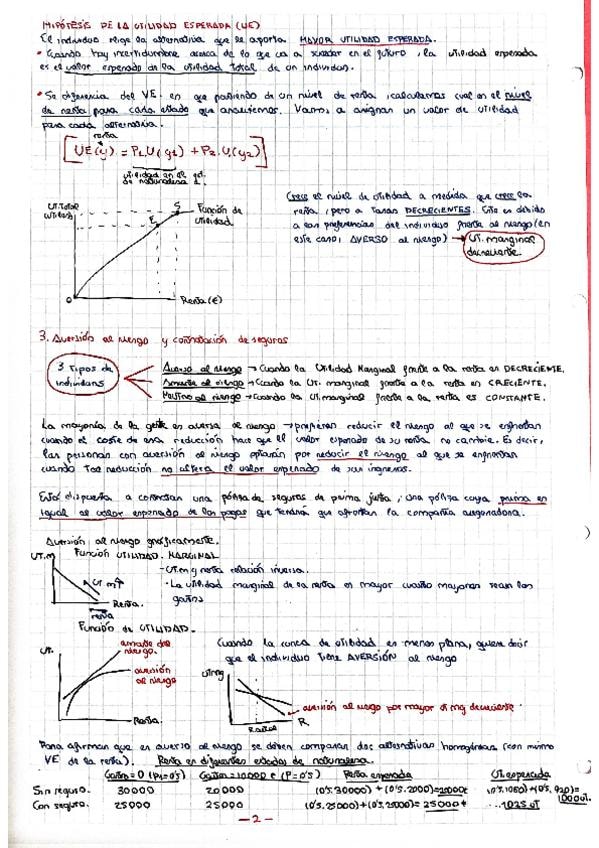 HIPÓTESIS DE LA UTILIDAD ESPERADA (UE)
El individuo elige la alternativa que le aporta MAYOR UTILIDAD ESPERADA.
• Cuando hay incertidumbre acerca de lo que va a suceder en el futuro, la utilidad esperada
es el valor esperado de la utilidad total de un individuo.
• Se diferencia del VE. en que partiendo de un nivel de renta, calculamos cual es el nivel
de renta para cada estado que analicemos. Vamos a asignar un valor de utilidad
para cada alternativa.
renta
UE(y) = P1.U(y1) + P2.U(y2)
utilidad en el est.
de naturaleza 1.
Crece el nivel de utilidad a medida que crece la
renta, pero a tasas DECRECIENTES. Esto es debido
a las preferencias del individuo frente al riesgo (en
este caso, AVERSO al riesgo) → UT. marginal
decreciente.
UT. Total
S
E
Función de
utilidad
0
Renta (€)
3. Aversión al riesgo y contratación de seguros
3 Tipos de
individuos
Averso al riesgo → Cuando la Utilidad Marginal frente a la renta es DECRECIENTE.
Amante al riesgo → Cuando la UT. marginal frente a la renta es CRECIENTE.
Neutro al riesgo → Cuando la UT. marginal frente a la renta es CONSTANTE.
La mayoría de la gente es aversa al riesgo → prefieren reducir el riesgo al que se enfrentan
cuando el coste de esa reducción hace que el valor esperado de su renta no cambie. Es decir,
las personas con aversión al riesgo optarán por reducir el riesgo al que se enfrentan
cuando tal reducción no altera el valor esperado de sus ingresos.
Está dispuesta a contratar una póliza de seguros de prima justa, una póliza cuya prima es
igual al valor esperado de los pagos que tendría que afrontar la compañía aseguradora.
Aversión al riesgo gráficamente.
Función UTILIDAD. MARGINAL
UT.m
UT.m↑
Renta.
renta
- UT.m y renta relación inversa.
- La utilidad marginal de la renta es mayor cuanto mayores sean los
gastos
Función de UTILIDAD.
UT.
amante del
riesgo.
aversión
al riesgo
Renta.
Cuando la curva de utilidad es menos plana, quiere decir
que el individuo tiene AVERSIÓN al riesgo
UTmg
aversión al riesgo por mayor UTmg decreciente
R
Para afirmar que es averso al riesgo se deben comparar dos alternativas homogéneas (con mismo
VE de la renta). Renta en diferentes estados de naturaleza.
Gastos = 0 (P=0'5) Gastos = 10000 € (P=0'5) Renta esperada UT. esperada
Sin seguro. 30000 20000 (0'5.30000) + (0'5.2000) = 25000€ (0'5.1080) + (0'5.920) = 1000 ut.
Con seguro. 25000 25000 (0'5.25000) + (0'5.25000) = 25000€ ... 1025 UT
- 2 -